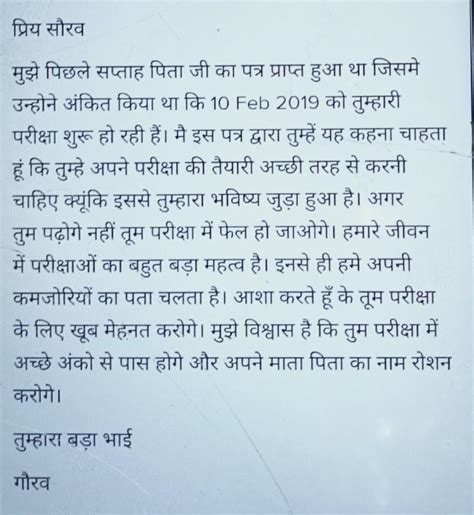 प्रिय सौरव
मुझे पिछले सप्ताह पिता जी का पत्र प्राप्त हुआ था जिसमे
उन्होने अंकित किया था कि 10 Feb 2019 को तुम्हारी
परीक्षा शुरू हो रही हैं। मै इस पत्र द्वारा तुम्हें यह कहना चाहता
हूं कि तुम्हे अपने परीक्षा की तैयारी अच्छी तरह से करनी
चाहिए क्यूंकि इससे तुम्हारा भविष्य जुड़ा हुआ है। अगर
तुम पढ़ोगे नहीं तूम परीक्षा में फेल हो जाओगे। हमारे जीवन
में परीक्षाओं का बहुत बड़ा महत्व है। इनसे ही हमे अपनी
कमजोरियों का पता चलता है। आशा करते हूँ के तूम परीक्षा
के लिए खूब मेहनत करोगे। मुझे विश्वास है कि तुम परीक्षा में
अच्छे अंको से पास होगे और अपने माता पिता का नाम रोशन
करोगे।
तुम्हारा बड़ा भाई
गौरव